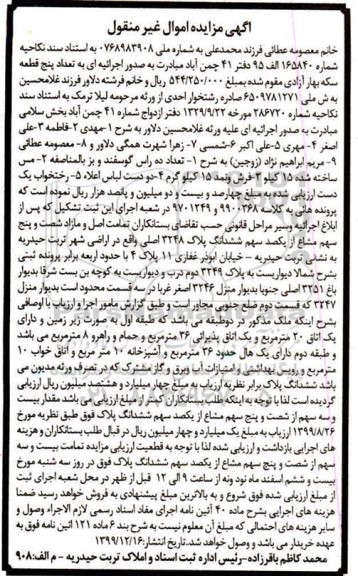 آگهی مزایده اموال غیر منقول
خانم معصومه عطائی فرزند محمدعلی به شماره ملی ۰۷۶۸۹۸۳۹۰۸ به استناد سند نکاحیه
شماره ۱۶۵۸۴۰ الف ۹۵ دفتر ۴۱ چمن آباد مبادرت به صدور اجرائیه ای به تعداد پنج قطعه
سکه بهار آزادی مقوم شده بمبلغ ۵۴۴/۲۵۰/۰۰۰ ریال و خانم فرشته دلاور فرزند غلامحسین
به ش ملی ۶۵۰۹۷۸۱۲۷۱ صادره رشتخوار احدی از ورثه مرحومه لیلا ترمک به استناد سند
نکاحیه شماره ۲۸۶۷۲۰ مورخه ۱۳۲۹/۹/۲۲ دفتر ازدواج شماره ۴۱ چمن آباد بخش سلامی
مبادرت به صدور اجرائیه ای علیه ورثه غلامحسین دلاور به شرح ۱-مهدی ۲-فاطمه ۳-علی
اصغر ۴- مهری ۵-علی اکبر ۶-شمسی ۷- زهرا شهرت همگی دلاور و ۸- معصومه عطائی
۹- مریم ابراهیم نژاد (زوجین) به شرح ۱- تعداد ده راس گوسفند و بز بالمناصفه ۲- مس
ساخته شده ۱۵ کیلو ۳-فرش و نمد ۱۵ کیلو گرم ۴-دو دست لباس اعلاء ۵- رختخواب یک
دست ارزیابی شده به مبلغ چهارصد و بیست و دو میلیون و پانصد هزار ریال نموده است که
پرونده هائی به کلاسه ۹۹۰۰۳۶۸ و ۹۷۰۱۲۴۹ در شعبه اجرای این ثبت تشکیل که پس از
ابلاغ اجرائیه وسیر مراحل قانونی حسب تقاضای بستانکاران تمامت اصل و مازاد شصت و پنج
سهم مشاع از یکصد سهم ششدانگ پلاک ۳۲۴۸ اصلی واقع در اراضی شهر تربت حیدریه
به نشانی تربت حیدریه – خیابان ابوذر غفاری ۱۱ پلاک ۴ با حدود اربعه برابر پرونده ثبتی
بشرح شمالا دیواریست به پلاک ۳۲۴۹ دوم درب و دیواریست به کوچه بن بست شرقا بدیوار
باغ ۳۲۵۱ اصلی جنوبا بدیوار منزل ۳۲۴۶ اصغر غربا در سه قسمت محدود است بدیوار منزل
۳۲۴۷ که قسمت دوم ضلع جنوبی مجاور است و طبق گزارش مامور اجرا و ارزیاب با اوصافی
بشرح اینکه ملک مذکور در دوطبقه می باشد که طبقه اول به صورت زیر زمین و دارای
یک اتاق ۲۰ مترمربع و یک اتاق پذیرائی ۳۶ مترمربع و حمام و راهرو ۸ مترمربع می باشد
و طبقه دوم دارای یک هال حدود ۳۶ مترمربع و آشپزخانه ۱۰ متر مربع و اتاق خواب ۱۰
مترمربع و رویس بهداشتی و امتیازات آب وبرق و گاز مشترک که در تصرف ورثه مدیون می
باشد ششدانگ پلاک برابر نظریه ارزیاب به مبلغ چهار میلیارد و هشتصد میلیون ریال ارزیابی
گردیده است لذا با توجه به اینکه طلب بستانکاران کمتر از مبلغ ارزیابی می باشد مقدار بیست
و سه سهم از شصت و پنج سهم مشاع از یکصد سهم ششدانگ پلاک فوق طبق نظریه مورخ
۱۳۹۹/۸/۲۶ ارزیاب به مبلغ یک میلیارد و چهار میلیون ریال در قبال طلب بستانکاران و هزینه
های اجرایی بازداشت و ارزیابی شده لذا با توجه به قطعیت ارزیابی مزایده تمامت بیست و سه
سهم از شصت و پنج سهم مشاع از یکصد سهم ششدانگ پلاک فوق در روز سه شنبه مورخ
بیست و ششم اسفند ماه نود ونه از ساعت ۹ الی ۱۲ قبل از ظهر در محل شعبه اجرای ثبت
از مبلغ ارزیابی شده فوق شروع و به بالاترین مبلغ پیشنهادی به فروش خواهد رسید ضمنا
هزینه های اجرایی بشرح ماده ۴۰ آئین نامه اجرای مفاد اسناد رسمی لازم الاجراء وصول و
سایر هزینه های احتمالی که مبلغ آن معلوم نیست به شرح بند ۶ ماده ۱۲۱ آئین نامه فوق به
عهده خریدار می باشد و وصول خواهد شد. تاریخ انتشار: ۱۳۹۹/۱۲/۱۶
محمد کاظم باقرزاده-رئیس اداره ثبت اسناد و املاک تربت حیدریه - م الف: ۹۰۸